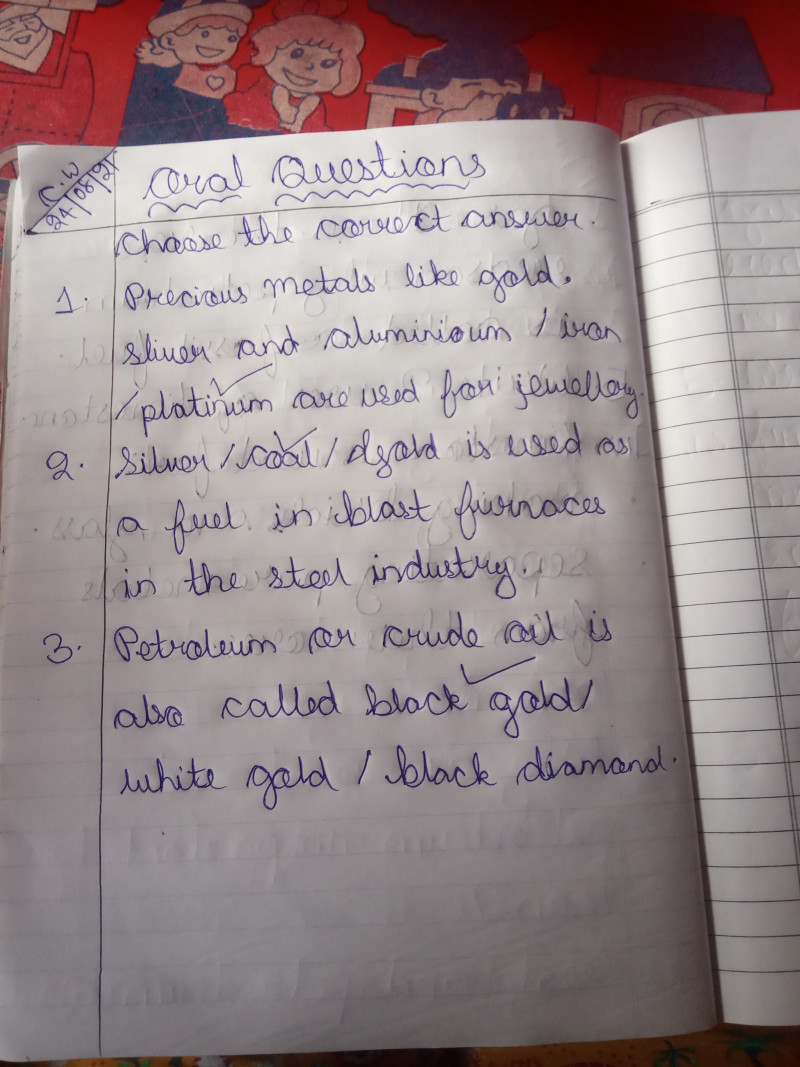 C.W
24/08/21
Oral Questions
Choose the correct answer.
1. Precious metals like gold,
sliver and aluminioum / iron
/ platinum are used for jewellory.
2. Silver / coal / gold is used as
a fuel in blast furnaces
in the steel industry.
3. Petroleum or crude oil is
also called black gold /
white gold / black diamond.